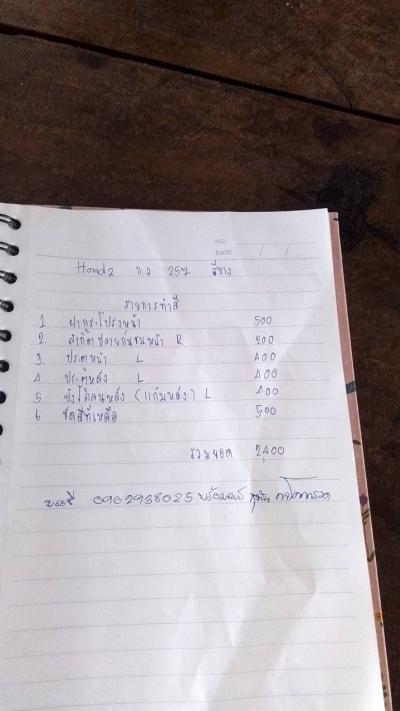 NO.
DATE / /
Honda ก.ง 257 สีขาว
รายการทำสี
1 ฝากระโปรงหน้า 500
2. สำกิตปลายกันชนหน้า R 200
3. ประตูหน้า L 400
4. ประตูหลัง L 400
5 บังโคลนหลัง (แก้มหลัง) L 400
6 ขัดสีที่เหลือ 500
รวมยอด 2,400
0962938025 พร้อมเพย์